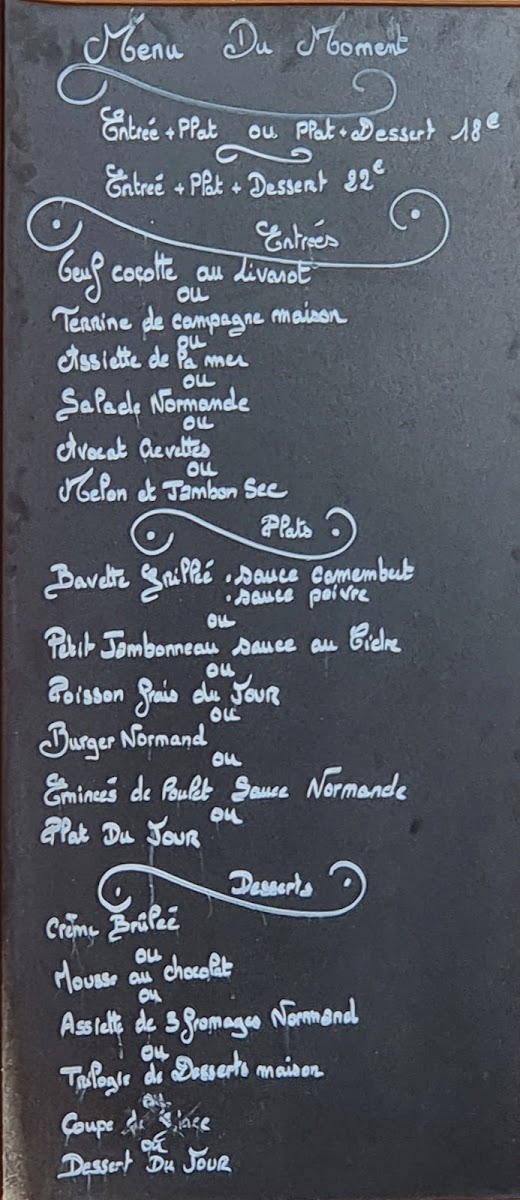 Menu Du Moment
Entrée + Plat ou Plat + Dessert 18€
Entreé + Plat + Dessert 22€
Entrées
Oeuf cocotte au Livarot
ou
Terrine de campagne maison
ou
Assiette de la mer
ou
Salade Normande
ou
Avocat Crevettes
ou
Melon et Jambon Sec
Plats
Bavette Grillé . sauce camembert
. sauce poivre
ou
Petit Jambonneau sauce au Cidre
ou
Poisson frais du Jour
ou
Burger Normand
ou
Emincés de Poulet Sauce Normande
ou
Plat Du Jour
Desserts
Crème Brûleé
ou
Mousse au chocolat
ou
Assiette de 3 fromages Normand
ou
Trilogie de Desserts maison
ou
Coupe de Glace
ou
Dessert Du Jour